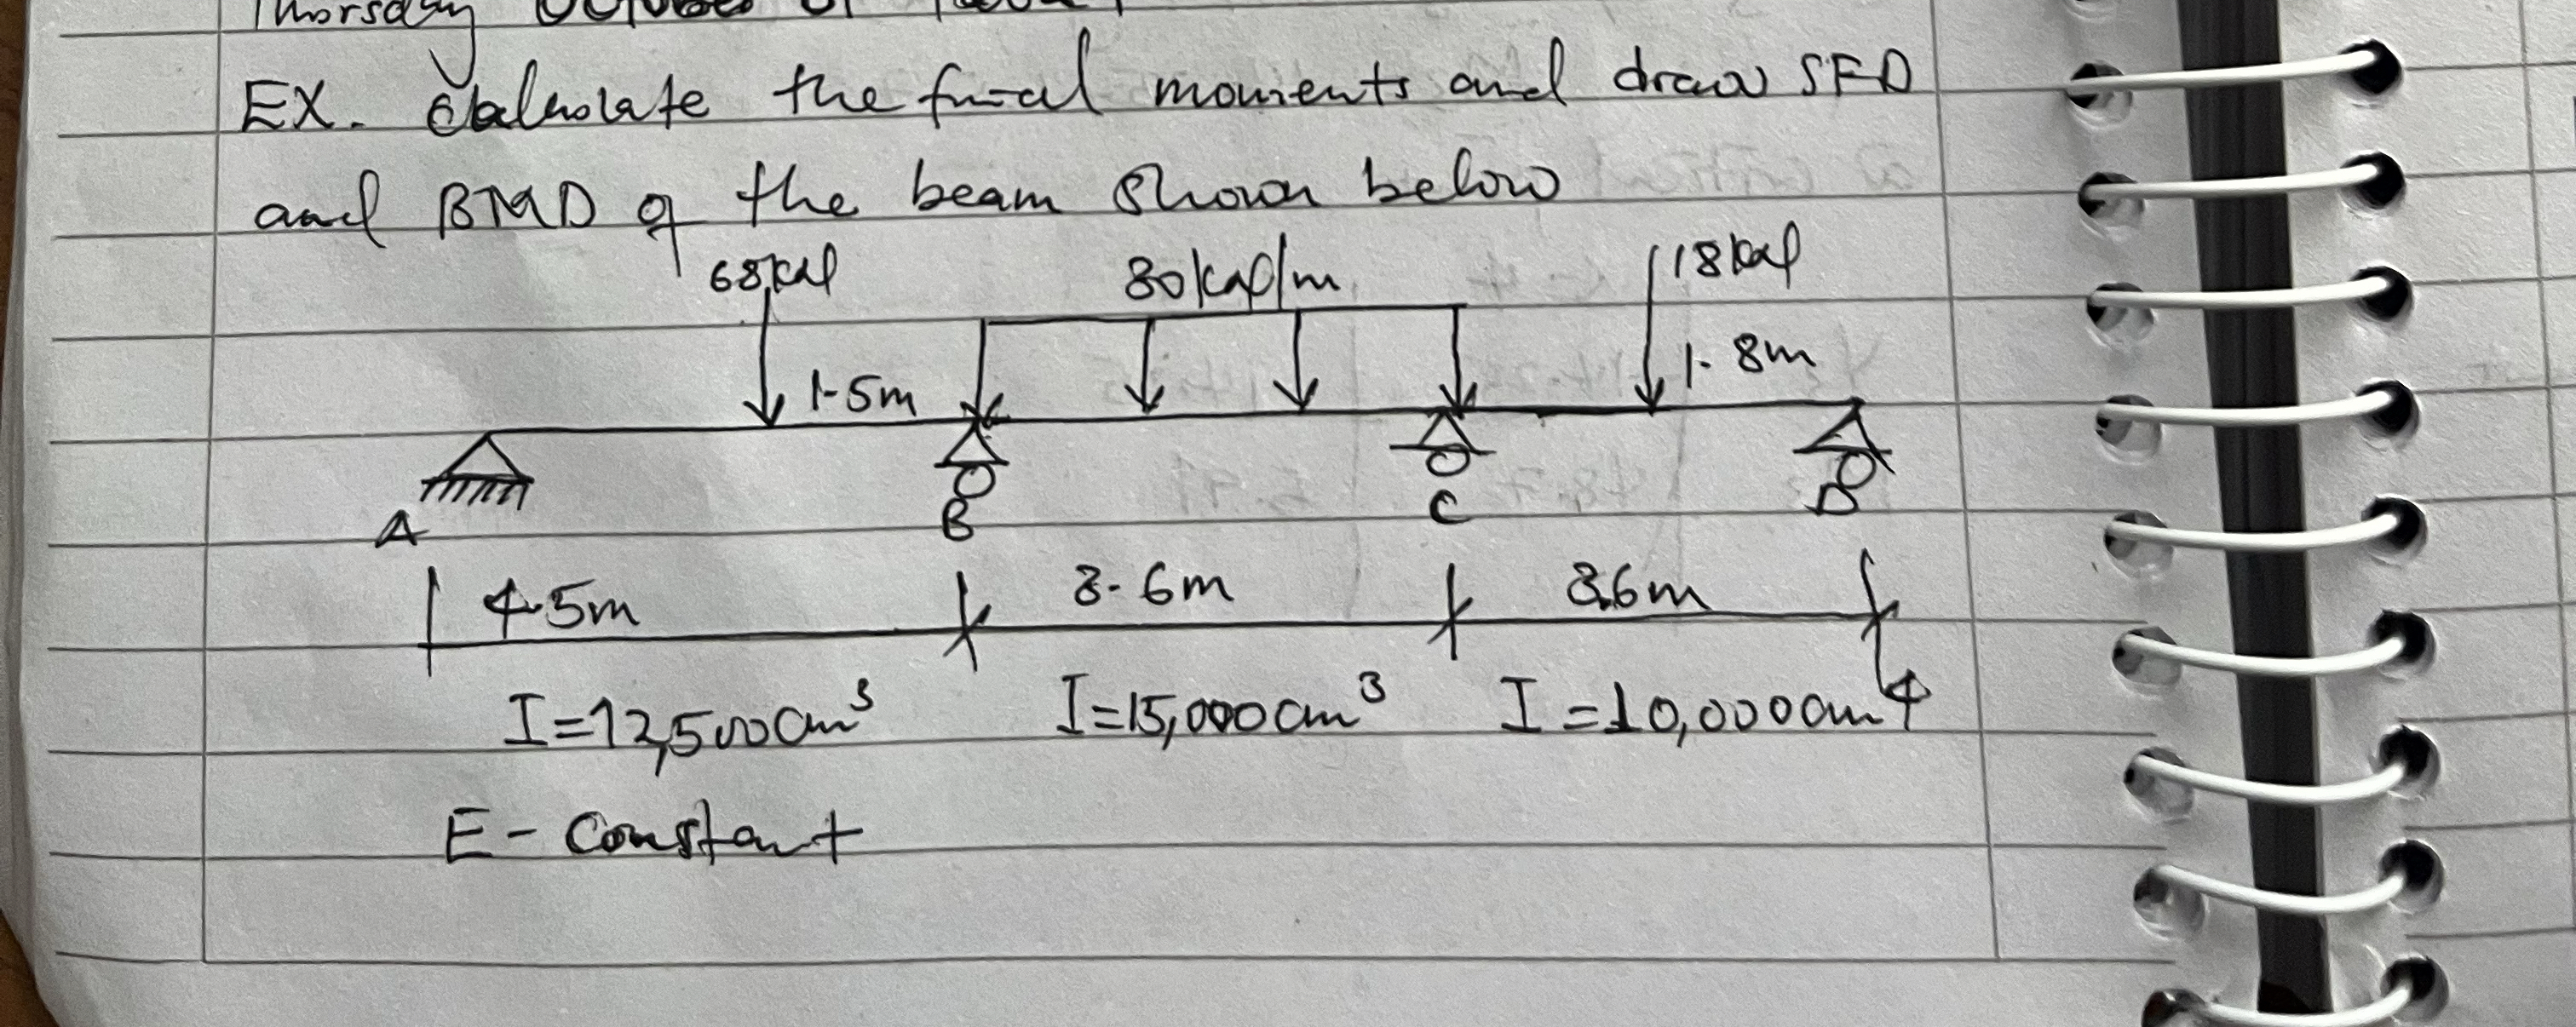 Thorsday October 01
EX. Calculate the final moments and draw SFD
and BMD of the beam shown below
68kN 80kN/m 18kN
1.5m 1.8m
A B C D
4.5m 3.6m 3.6m
I=12,500cm³ I=15,000cm³ I=10,000cm4
E- Constant